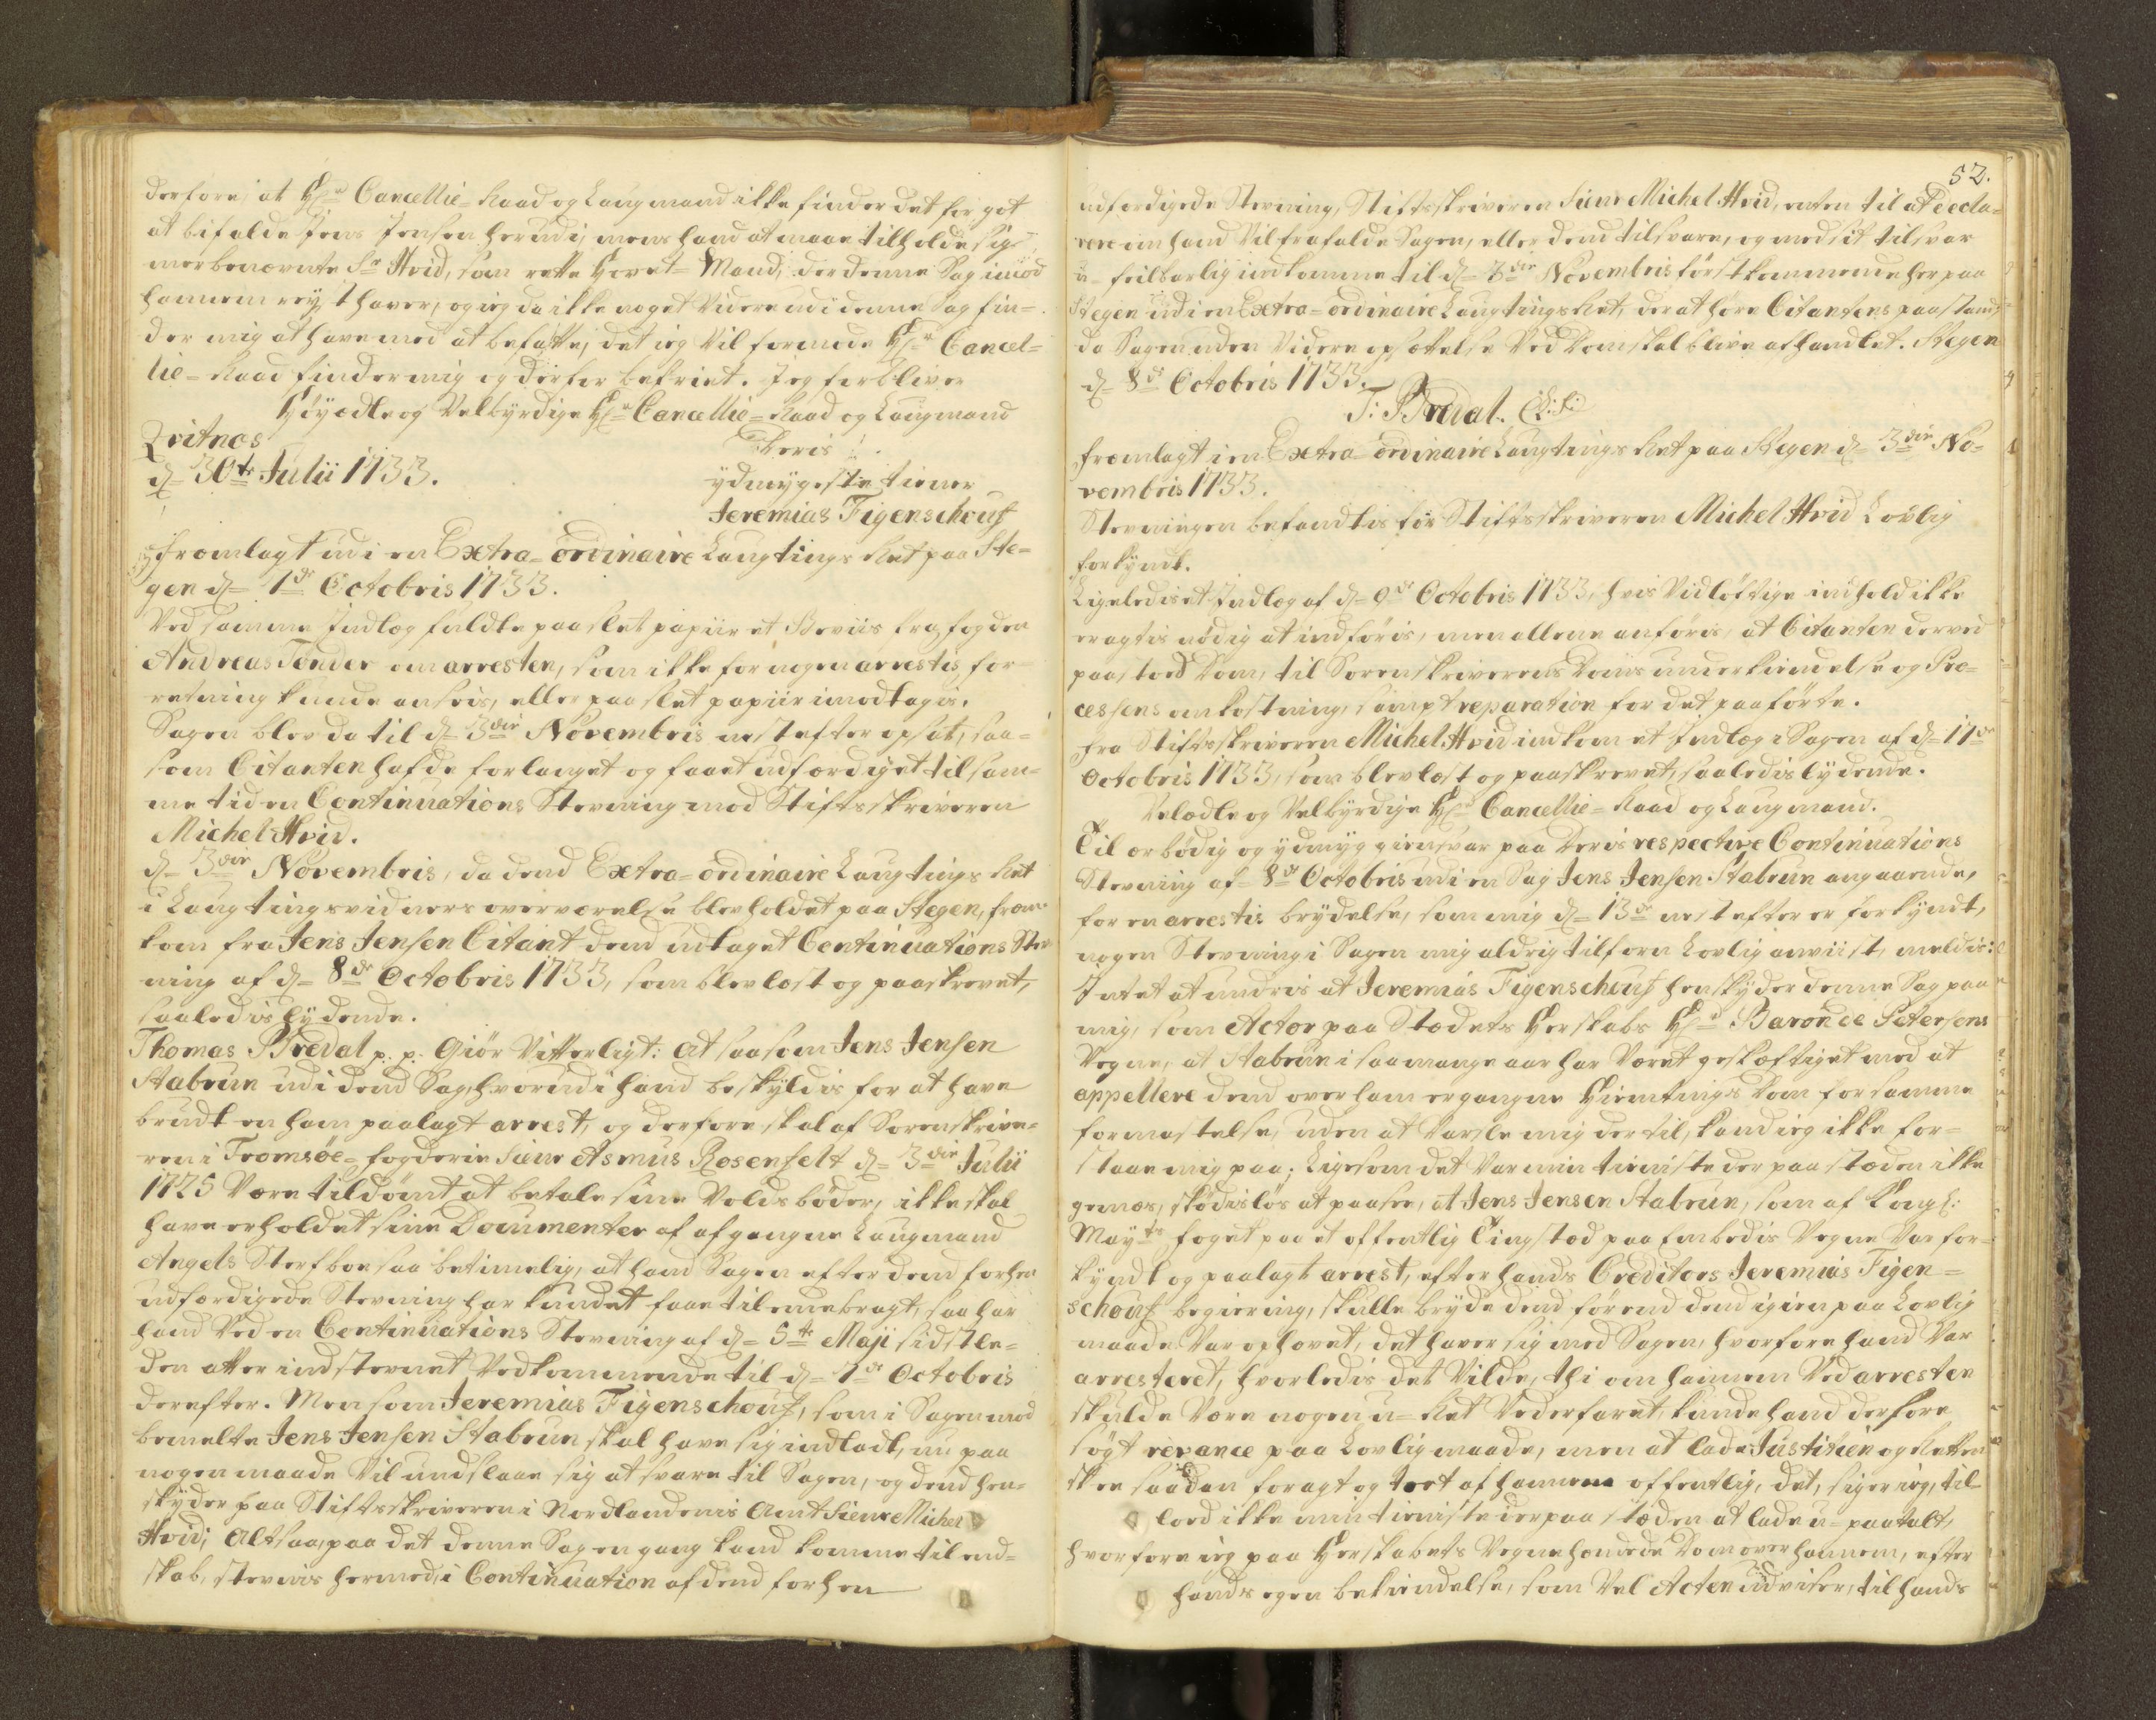 derfore, at Hr. Cancellie-Raad og Laugmand ikke finder det for got
at bifalde Jens Jensen herudi, mens hand at maae tilholde sig
merbenævnte Sr. Hvid, som rette Hoved-Mand, der denne Sag imod
hannem reyst haver, og ieg da ikke noget videre udi denne Sag fin-
der mig at have med at befatte, det ieg vil formode Hr. Cancel-
lie-Raad finder mig og derfor befriet. Jeg forbliver
Höyædle og Velbyrdige Hr. Cancellie-Raad og Laugmand
Qvitnæs Deris
d. 30te Julii 1733. ydmygeste tiener
Jeremias Figenschouf
Fremlagt udi en Extra-ordinaire Laugtings Ret paa Ste-
gen d. 1de Octobris 1733.
Ved samme Indlæg fuldte paa slet papiir et Beviis fra fogden
Andreas Tønder om arresten, som ikke for nogen arrestis for-
retning kunde ansees, eller paa slet papiir imodtagis.
Sagen blev da til d. 3die Novembris nest efter opsat, saa-
som Citanten hafde forlanget og faaet udferdiget til sam-
me tid en Continuations Stevning mod Stiftsskriveren
Michel Hvid.
d. 3die Novembris, da dend Extra-ordinaire Laugtings Ret
i Laugtingsvidners overværelse blev holdet paa Stegen, frem-
kom fra Jens Jensen Citant dend udtaget Continuations Stev
ning af d. 8de Octobris 1733, som blev læst og paaskrevet,
saaledis lydende.
Thomas Bredal p. p. Giör Vitterligt: At saasom Jens Jensen
Stabrun udi dend Sag, hvorudi hand beskyldis for at have
brudt en ham paalagt arrest, og derfore skal af Sorenskrive-
ren i Tromsöe-fogderie Sieur Asmus Rosenfelt d. 3die Julii
1725 være tildömt at betale sine Voldsböder, ikke skal
have erholdet sine Documenter af afgangne Laugmand
Angels Sterfboe saa betimelig, at hand Sagen efter dend forhen
udferdigede Stevning har kundet faae til ende bragt, saa har
hand ved en Continuations Stevning af d. 5te Maji sidstle-
den atter indstevnet Vedkommende til d. 1de Octobris
derefter. Men som Jeremias Figenschouf, som i Sagen mod
bemelte Jens Jensen Stabrun skal have sig indladt, nu paa
nogen maade vil undslaae sig at svare til Sagen, og dend hen-
skyder paa Stiftsskriveren i Nordlandenis Amt Sieur Michel
Hvid; Altsaa, paa det denne Sag en gang kand komme til end-
skab, stevnis hermed, i Continuation af dend forhen
52.
udferdigede Stevning, Stiftsskriveren Sieur Michel Hvid, enten til at decla-
rere om hand vil frafalde Sagen, eller dend tilsvare, og med sit tilsvar
u-feilbarlig indkomme til d. 3die Novembris först kommende her paa
Stegen udi en Extra-ordinaire Laugtings Ret, der at höre Citantens paastand,
da Sagen uden videre opsættelse ved Dom skal blive afhandlet. Stegen
d. 8de Octobris 1733.
T: Bredal. (L: S:)
Fremlagt i en Extra-ordinaire Laugtings Ret paa Stegen d. 3die No-
vembris 1733.
Stevningen befandtis for Stiftsskriveren Michel Hvid Lovlig
forkyndt.
Ligeledis et Indlæg af d. 9de Octobris 1733, hvis Vidlöftige indhold ikke
eragtis nödig at indföris, men allene anföris, at Citanten derved
paastoed Dom, til Sorenskriverens Doms underkiendelse og Pro-
cessens omkostning, sampt reparation for det paaförte.
Fra Stiftsskriveren Michel Hvid indkom et Indlæg i Sagen af d. 17de
Octobris 1733, som blev læst og paaskrevet, saaledis lydende.
Velædle og Velbyrdige Hr. Cancellie-Raad og Laugmand.
Til ærbödig og ydmyg giensvar paa Deris respective Continuations
Stevning af 8de Octobris udi en Sag Jens Jensen Stabrun angaaende,
for en arrestis brydelse, som mig d. 13de nest efter er forkyndt,
nogen Stevning i Sagen mig aldrig tilforn Lovlig anviist, meldis:
Intet at undris at Jeremias Figenschouf henskyder denne Sag paa
mig, som Actor paa Stedets Herskabs Hr. Baron de Petersens
Vegne, at Stabrun i saa mange aar har været geskæftiget med at
appellere dend over ham ergangne Hiemtings Dom for samme
formastelse, uden at varsle mig der til, kand ieg ikke for-
staae mig paa; Ligesom det var min tieniste der paa stæden ikke
gemæs, skiödislös at paasee, at Jens Jensen Stabrun, som af Kongl:
Mayts foget paa et offentlig Tingsted paa Embedis Vegne var for-
kyndt og paalagt arrest, efter hands Creditors Jeremias Figen-
schouf begiering, skulle bryde dend förend dend igien paa Lovlig
maade var ophævet, det haver sig med Sagen, hvorfore hand var
arresteret, hvorledis det Vilde, thi om hannem ved arresten
skulde være nogen u-Ret vederfaret, kunde hand derfore
sögt revance paa Lovlig maade, men at lade Justitien og Retten
skee saadan foragt og tort af hannem offentlig, det, siger ieg, til-
loed ikke min tieniste der paa stæden at lade u-paatalt,
hvorfore ieg paa Herskabets Vegne hændede Dom over hannem, efter
hands egen bekiendelse, som vel Acten udviser, til hands